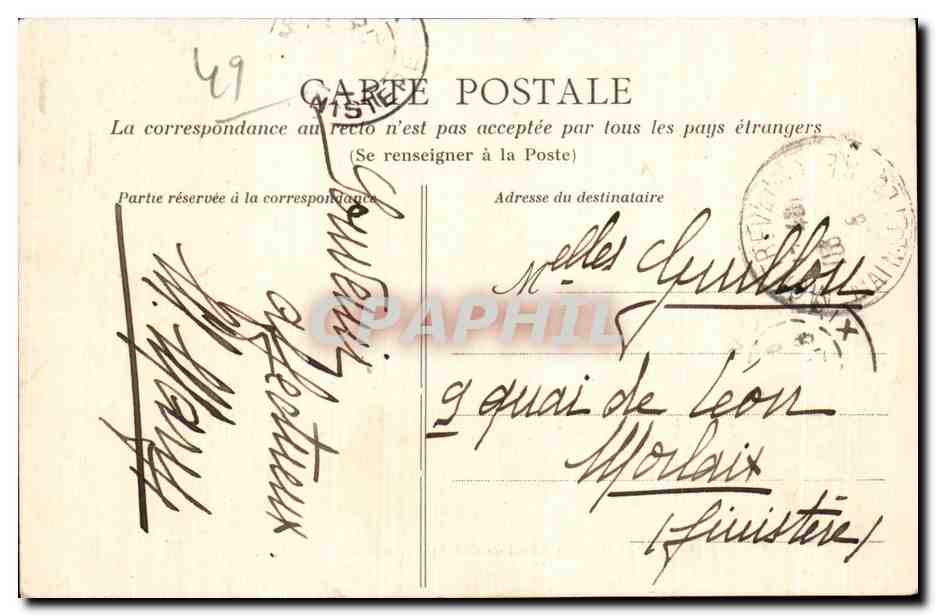 49
CARTE POSTALE
La correspondance au recto n'est pas acceptée par tous les pays étrangers
(Se renseigner à la Poste)
Partie réservée à la correspondance
Souvenir
affectueux
Adresse du destinataire
Melles Guillou
9 quai de Léon
Morlaix
(Finistère)
CPAPHIL
FINISTERE